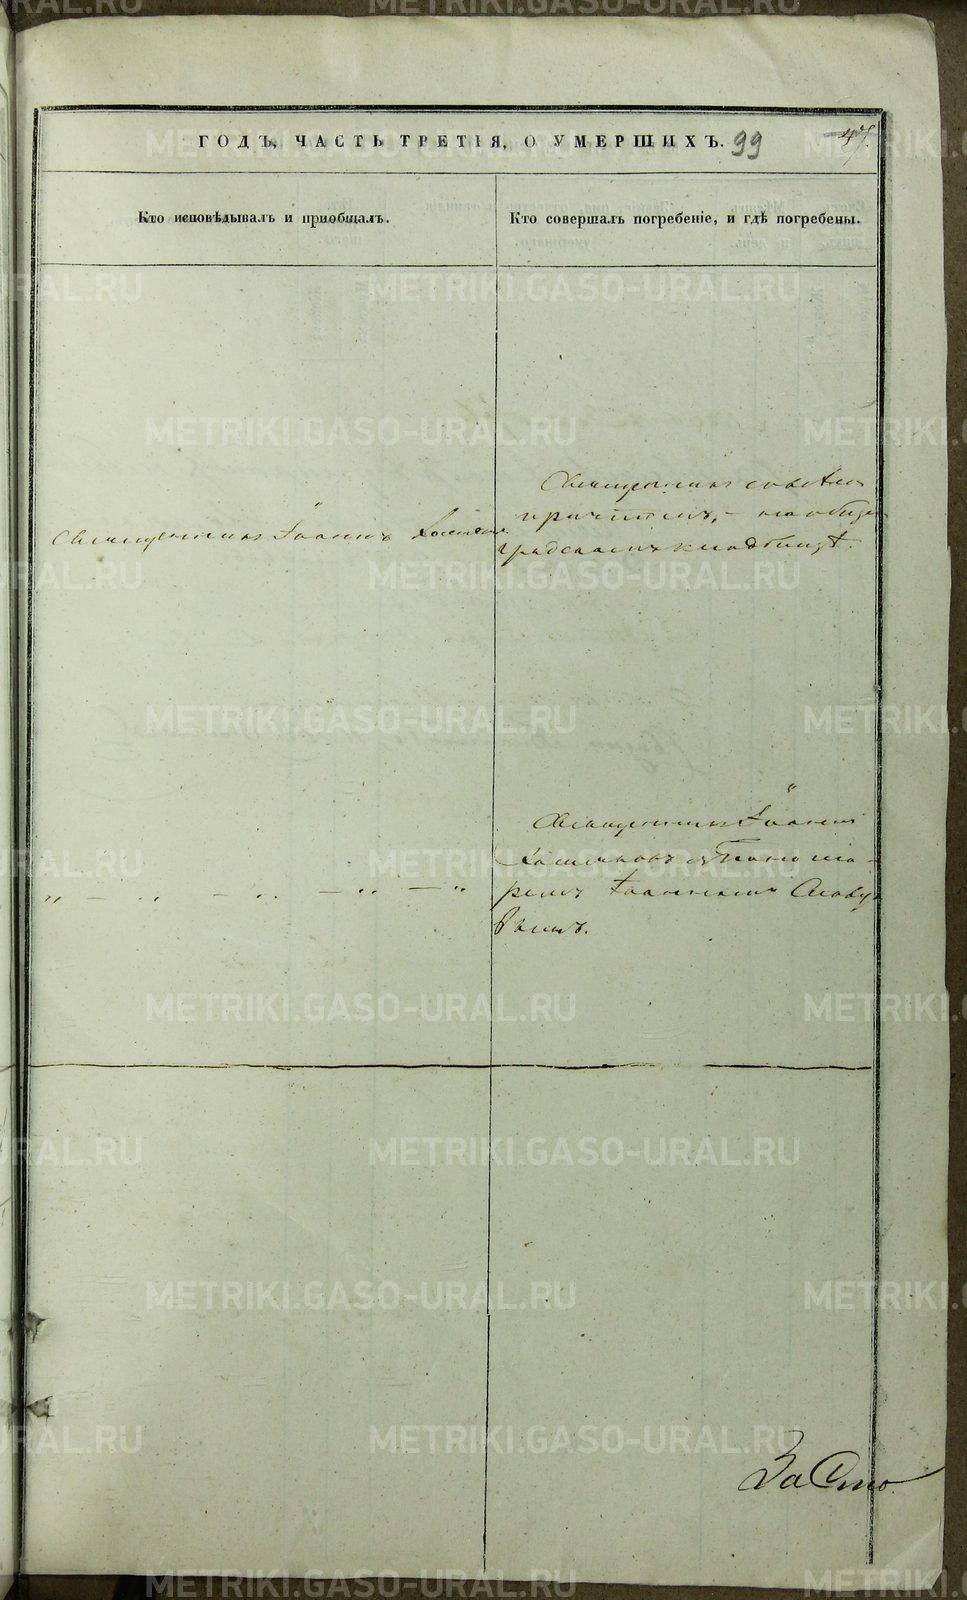 ГОДЪ, ЧАСТЬ ТРЕТІЯ, О УМЕРШИХЪ. 99
Кто исповѣдывалъ и пріобщалъ.
Кто совершалъ погребеніе, и гдѣ погребены.
Священникъ Іоаннъ
Священникъ
причтомъ, - на обще
градскомъ кладбищѣ.
Священникъ Іоаннъ
съ Понома-
ремъ Іоанномъ
За
METRIKI.GASO-URAL.RU